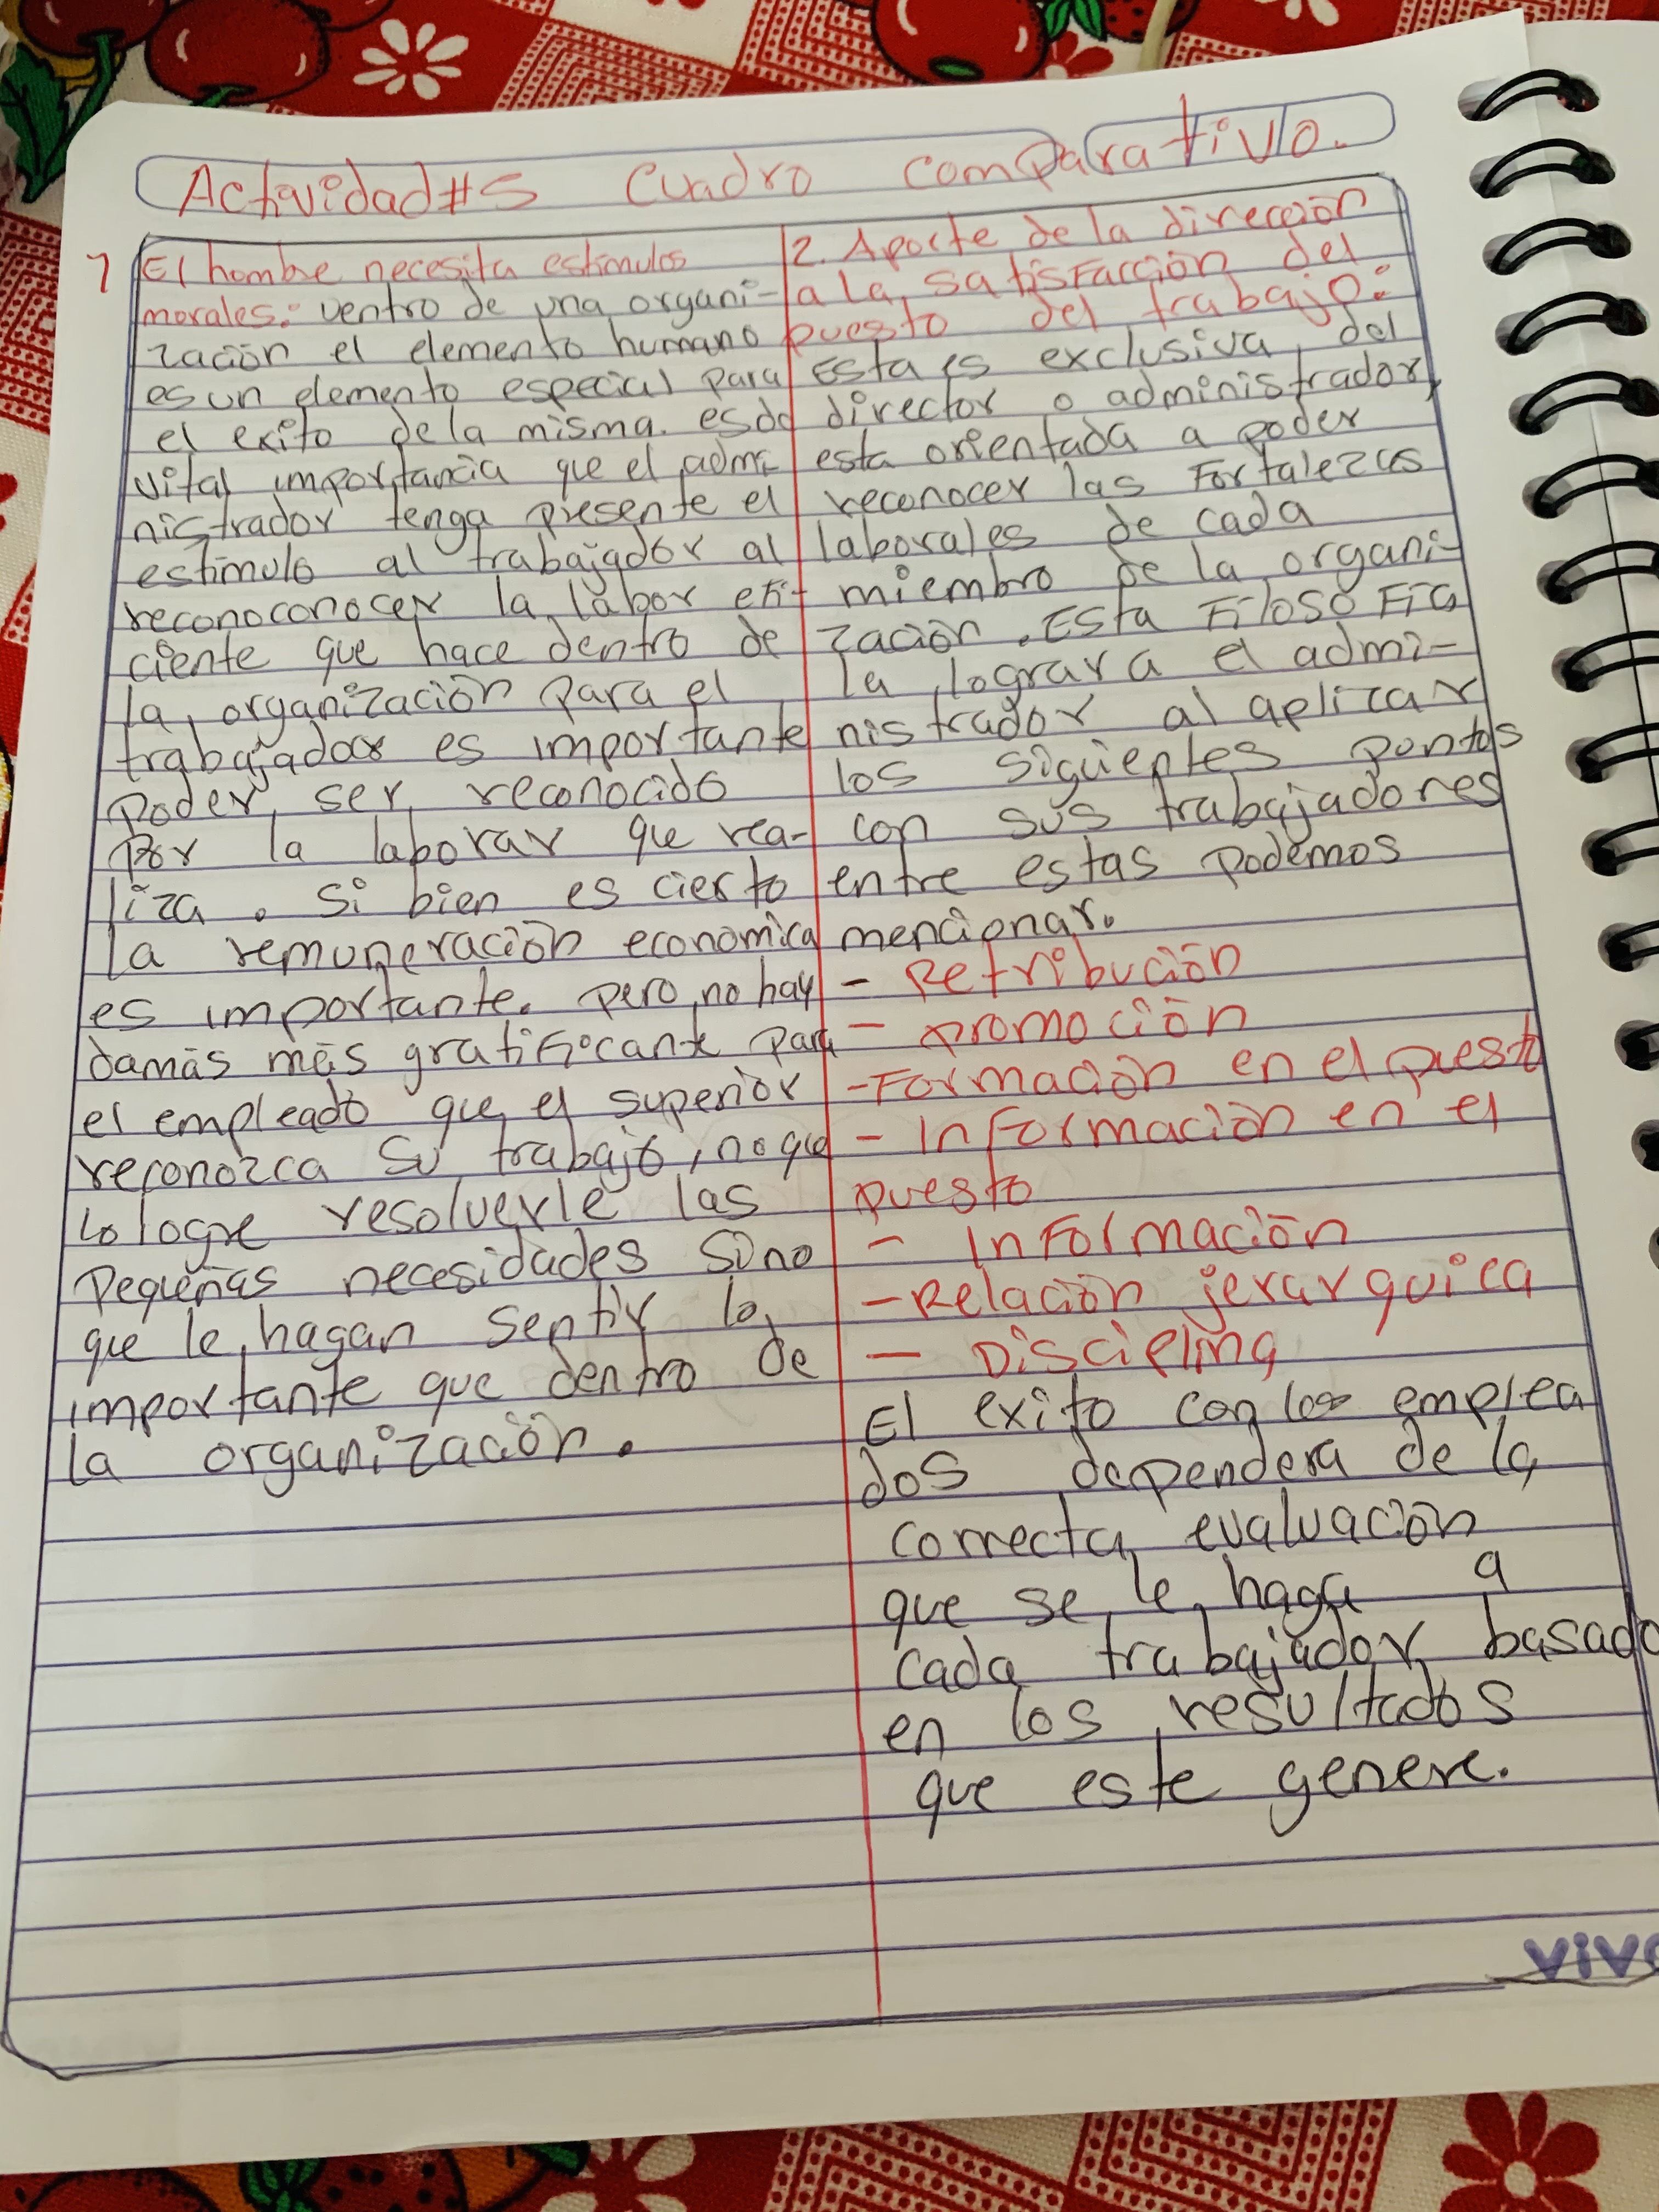 Actividad #5 Cuadro comparativo.
1 El hombre necesita estimulos
morales: Dentro de una organi-
zación el elemento humano
es un elemento especial para
el exito de la misma. es de
vital importancia que el admi
nistrador tenga presente el
estimulo al trabajador al
reconoconocer la labor efi-
ciente que hace dentro de
la organización para el
trabajador es importante
poder ser reconocido
por la laborar que rea-
liza. Si bien es cierto
la remuneración economica
es importante. pero no hay
damás más gratificante para
el empleado que el superior
reconozca su trabajo, no que
lo logre resolverle las
pequeñas necesidades sino
que le hagan sentir lo
importante que dentro de
la organización.
2. Aporte de la dirección
a la satisfacción del
puesto del trabajo:
Esta es exclusiva del
director o administrador,
esta orientada a poder
reconocer las fortalezas
laborales de cada
miembro de la organi-
zación. Esta Filosofia
la lograra el admi-
nistrador al aplicar
los siguientes puntos
con sus trabajadores
entre estas podemos
mencionar.
- Retribución
- promoción
- Formación en el puesto
- Información en el
puesto
- Información
- Relación jerarquica
- Disciplina
El exito con los emplea
dos dependera de la
correcta evaluación
que se le haga a
cada trabajador basado
en los resultados
que este genere.